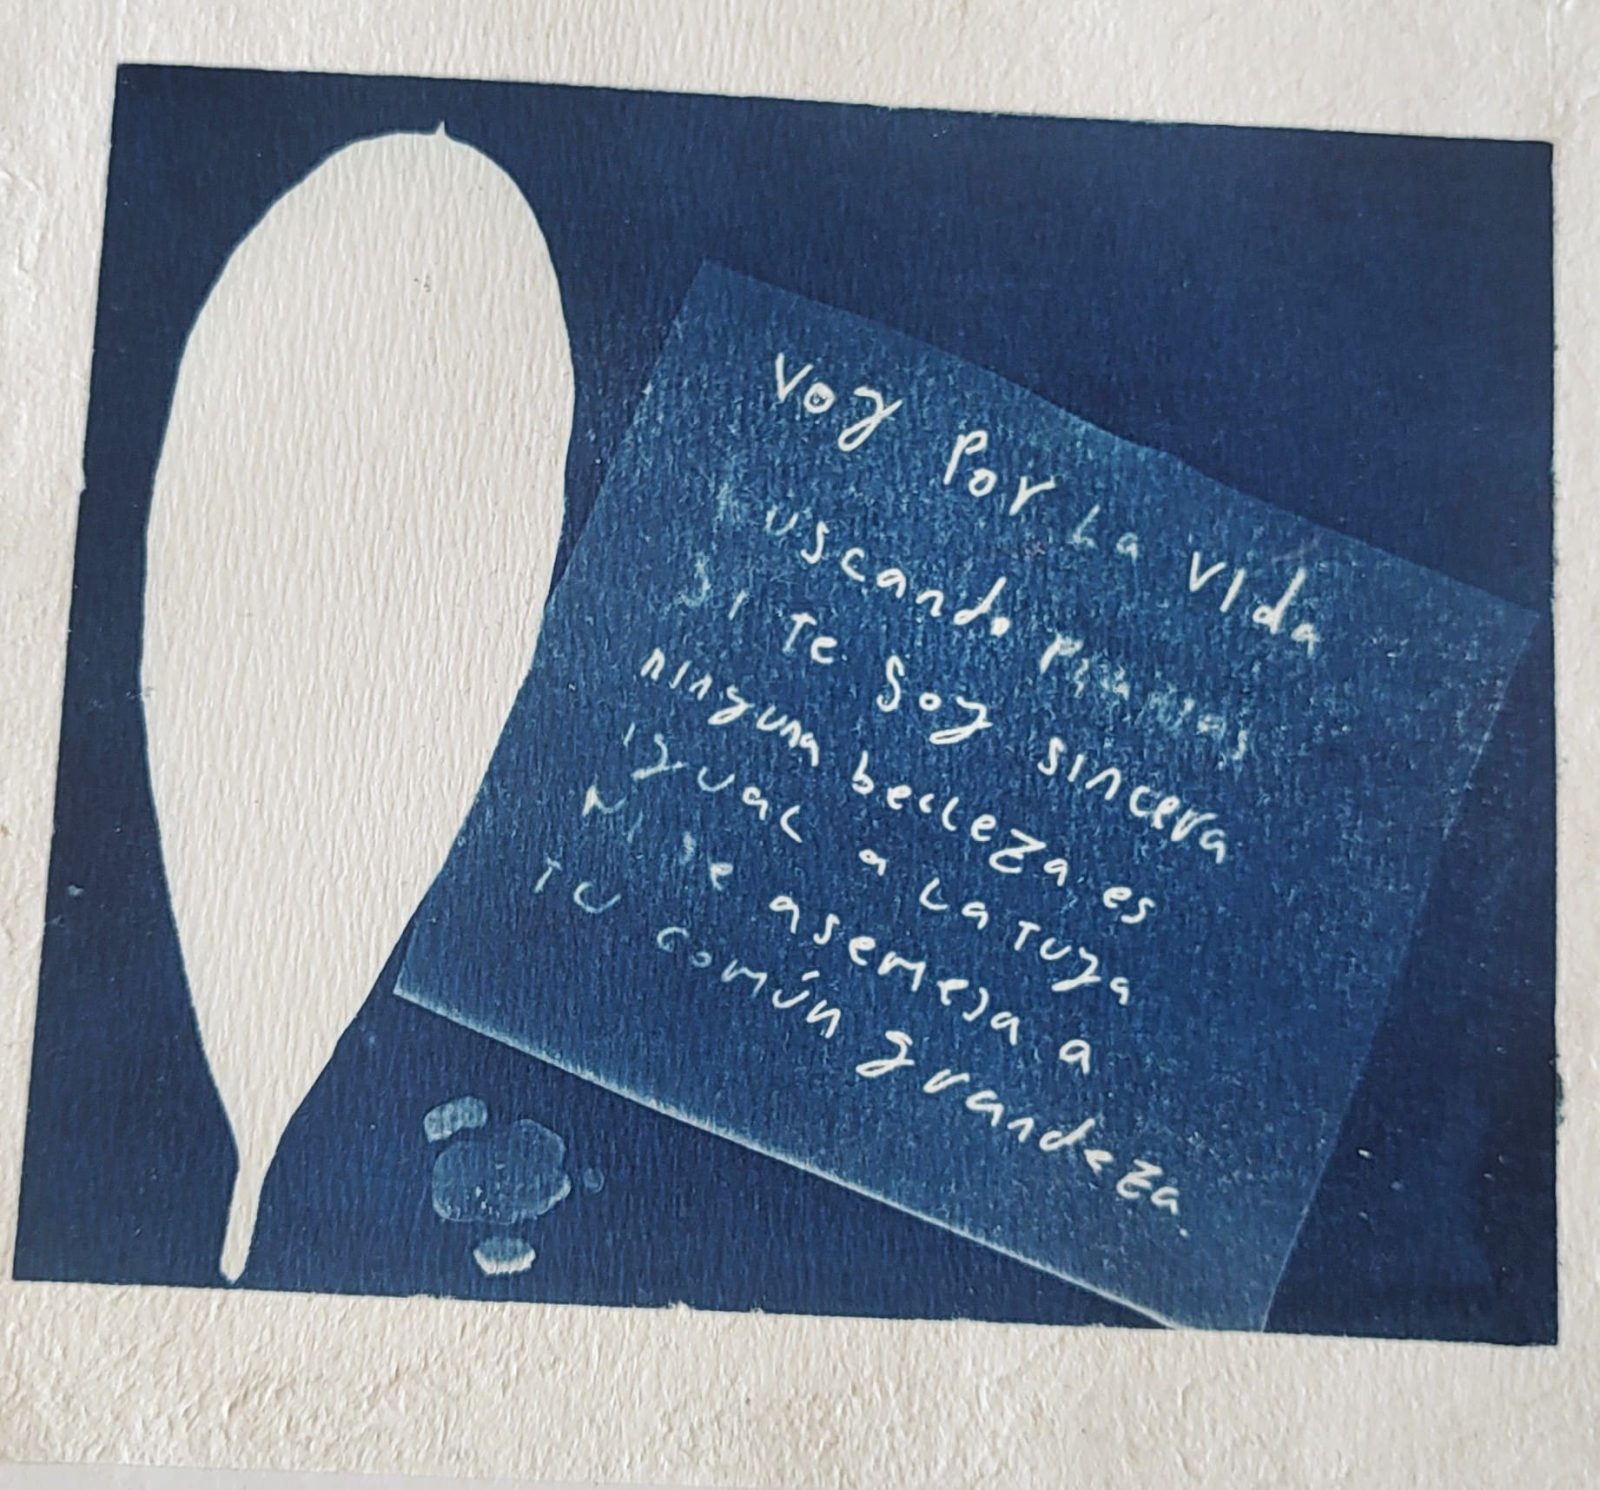 Voy por la vida
buscando
si te soy sincera
ninguna belleza es
igual a la tuya
Ni se asemeja a
tu común grandeza.